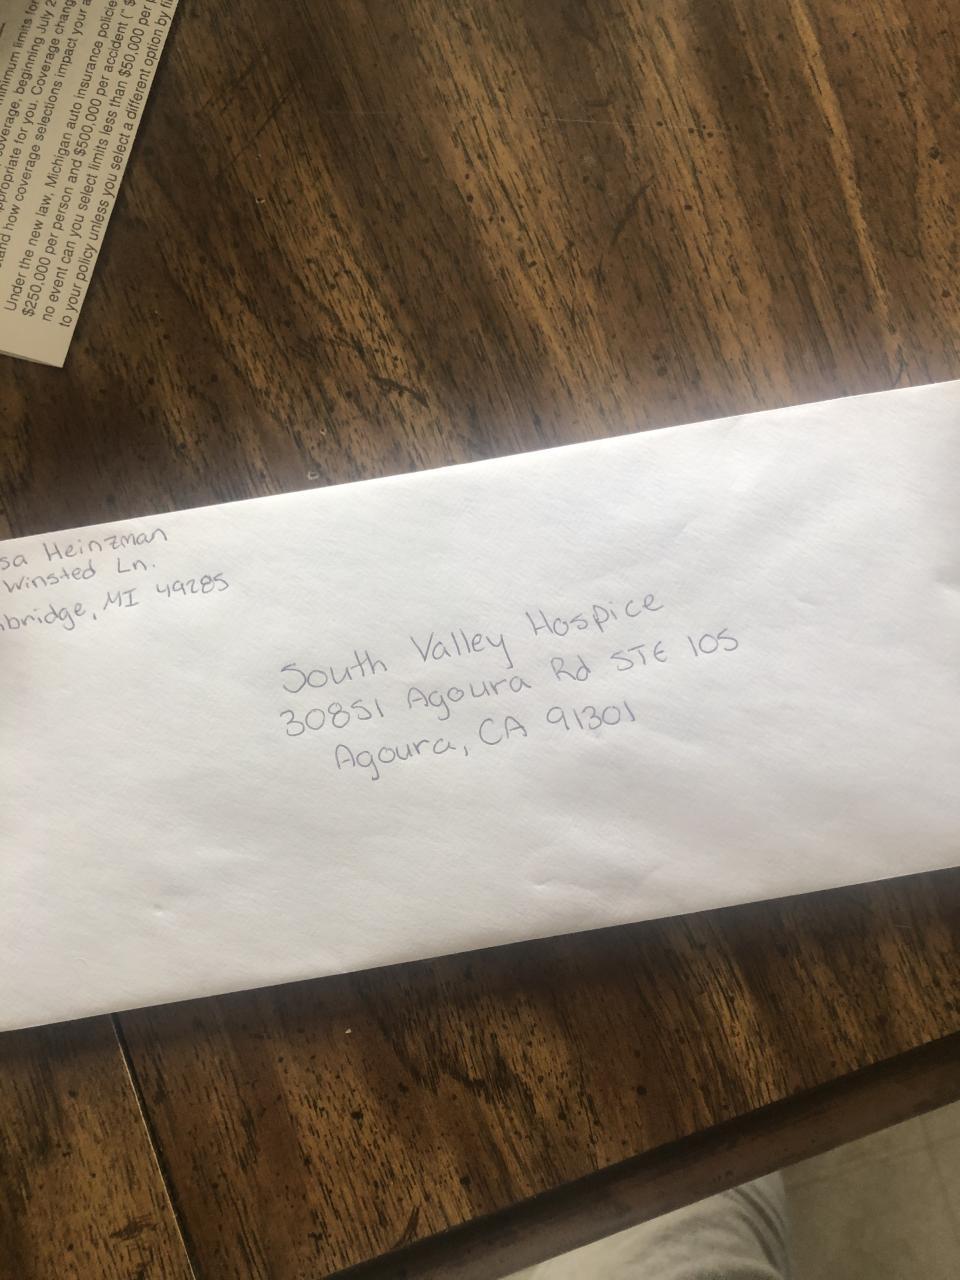 minimum limits for
overage, beginning July 2
ppropriate for you. Coverage chang
tand how coverage selections impact your a
Under the new law, Michigan auto insurance policie
$250,000 per person and $500,000 per accident ("$
no event can you select limits less than $50,000 per p
to your policy unless you select a different option by fi
sa Heinzman
Winsted Ln.
bridge, MI 49285
South Valley Hospice
30851 Agoura Rd STE 105
Agoura, CA 91301